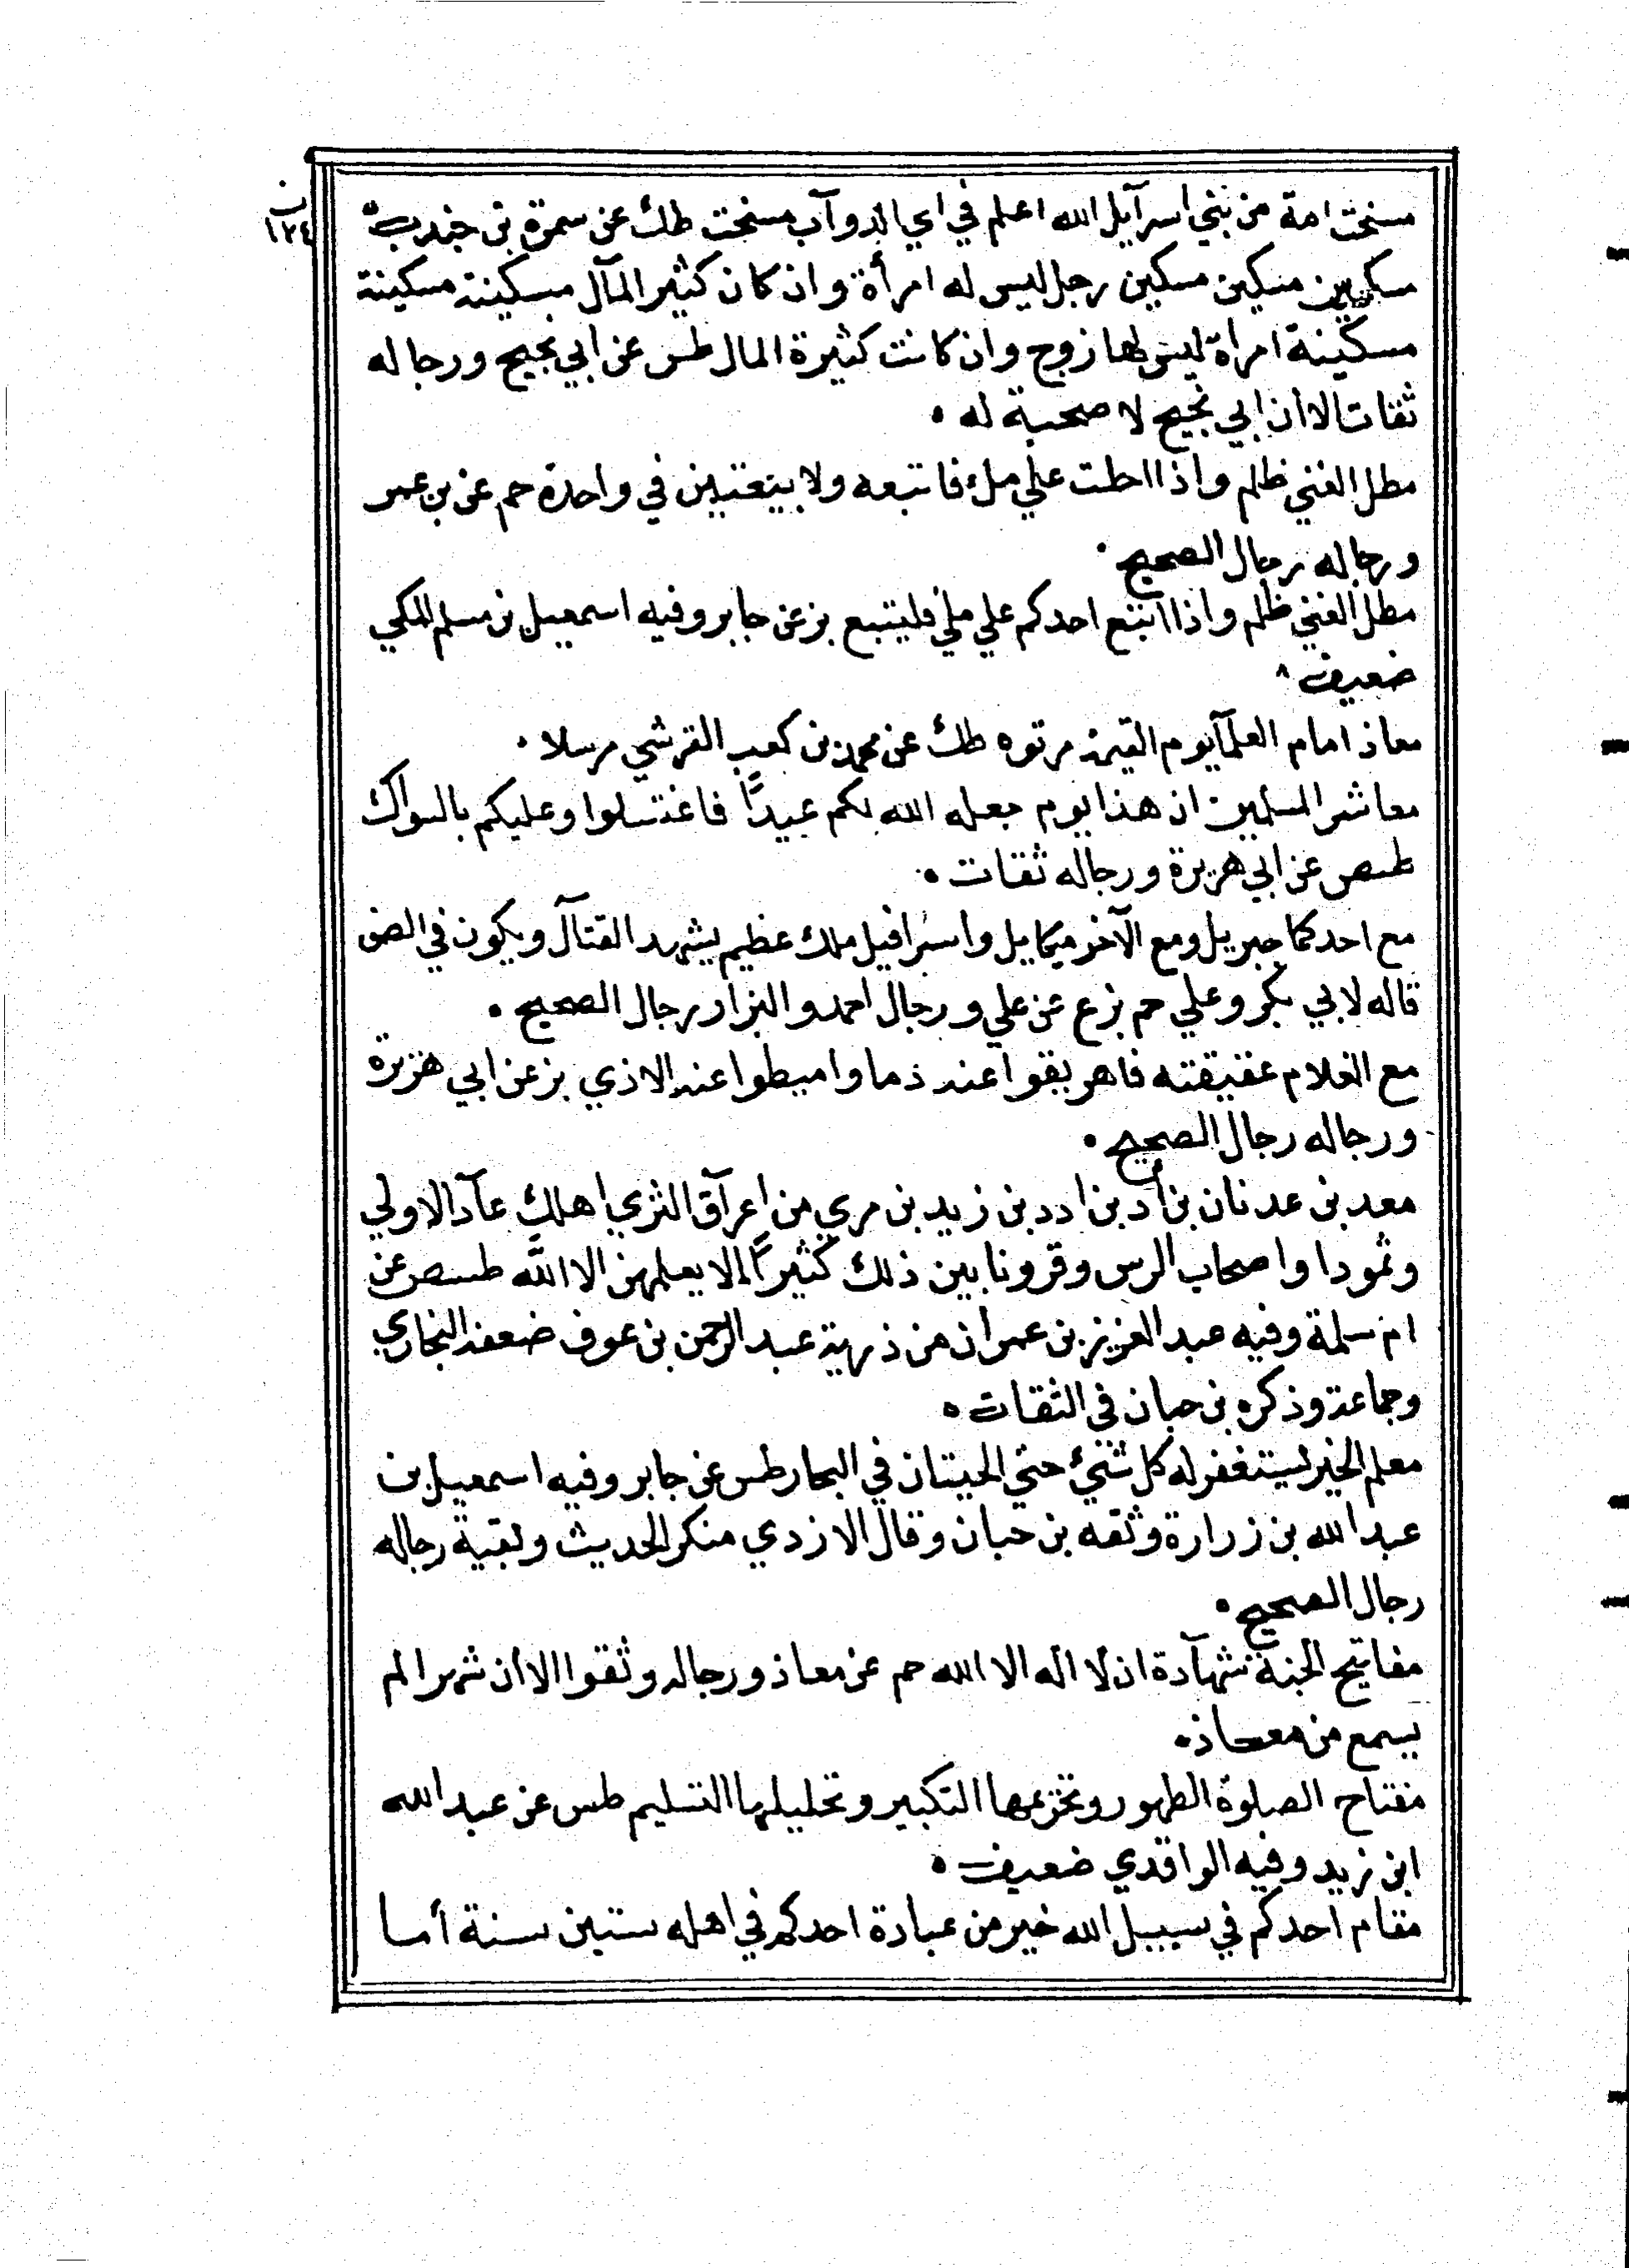 ب
١٢٤
مسخت امة من بني اسرآيل الله اعلم في اي الدوآب مسخت طك عن سمرة بن جندب
مسكين مسكين مسكين رجل ليس له امرأة وان كان كثير المآل مسكينة مسكينة
مسكينة امرأة ليس لها زوج وان كانت كثيرة المال طس عن ابي نجيح ورجاله
ثقات الا أن ابي نجيح لا صحبة له ۰
مطل الغني ظلم واذا احلت علي ملء فاتبعه ولا بيعتين في واحدة حم عن بن عمر
ورجاله رجال الصحيح ۰
مطل الغني ظلم واذا اتبع احدكم علي ملئ فليتبع بز عن جابر وفيه اسمعيل بن مسلم المكي
ضعيف ۸
معاذ امام العلمآ يوم القيمة برتوه طك عن محمد بن كعب القرشي مرسلا ۰
معاشر المسلمين ان هذا يوم جعله الله لكم عيدًا فاغتسلوا وعليكم بالسواك
طسص عن ابي هريرة ورجاله ثقات ۰
مع احدكما جبريل ومع الآخر ميكاييل واسرافيل ملك عظيم يشهد القتآل ويكون في الصف
قاله لابي بكر وعلي حم بز ع عن علي ورجال احمد والبزار رجال الصحيح ۰
مع الغلام عقيقته فاهريقوا عنه دما واميطوا عنه الاذي بز عن ابي هريرة
ورجاله رجال الصحيح ۰
معد بن عدنان بن أد بن ادد بن زيد بن مري من اعرآق الثري اهلك عآد الاولي
وثمودا واصحاب الرس وقرونا بين ذلك كثيرًا لا يعلمهن الا الله طسص عن
ام سلمة وفيه عبد العزيز بن عمران من ذرية عبد الرحمن بن عوف ضعفه البخاري
وجماعة وذكره بن حبان في الثقات ۰
معلم الخير يستغفر له كل شئ حتي الحيتان في البحار طس عن جابر وفيه اسمعيل بن
عبد الله بن زرارة وثقه بن حبان وقال الازدي منكر الحديث وبقية رجاله
رجال الصحيح ۰
مفاتيح الجنة شهآدة ان لا اله الا الله حم عن معاذ ورجاله وثقوا الا أن شهرا لم
يسمع من معاذ ۰
مفتاح الصلوة الطهور وتحريمها التكبير وتحليلها التسليم طس عن عبد الله
ابن زيد وفيه الواقدي ضعيف ۰
مقام احدكم في سبيل الله خير من عبادة احدكم في اهله ستين سنة أما